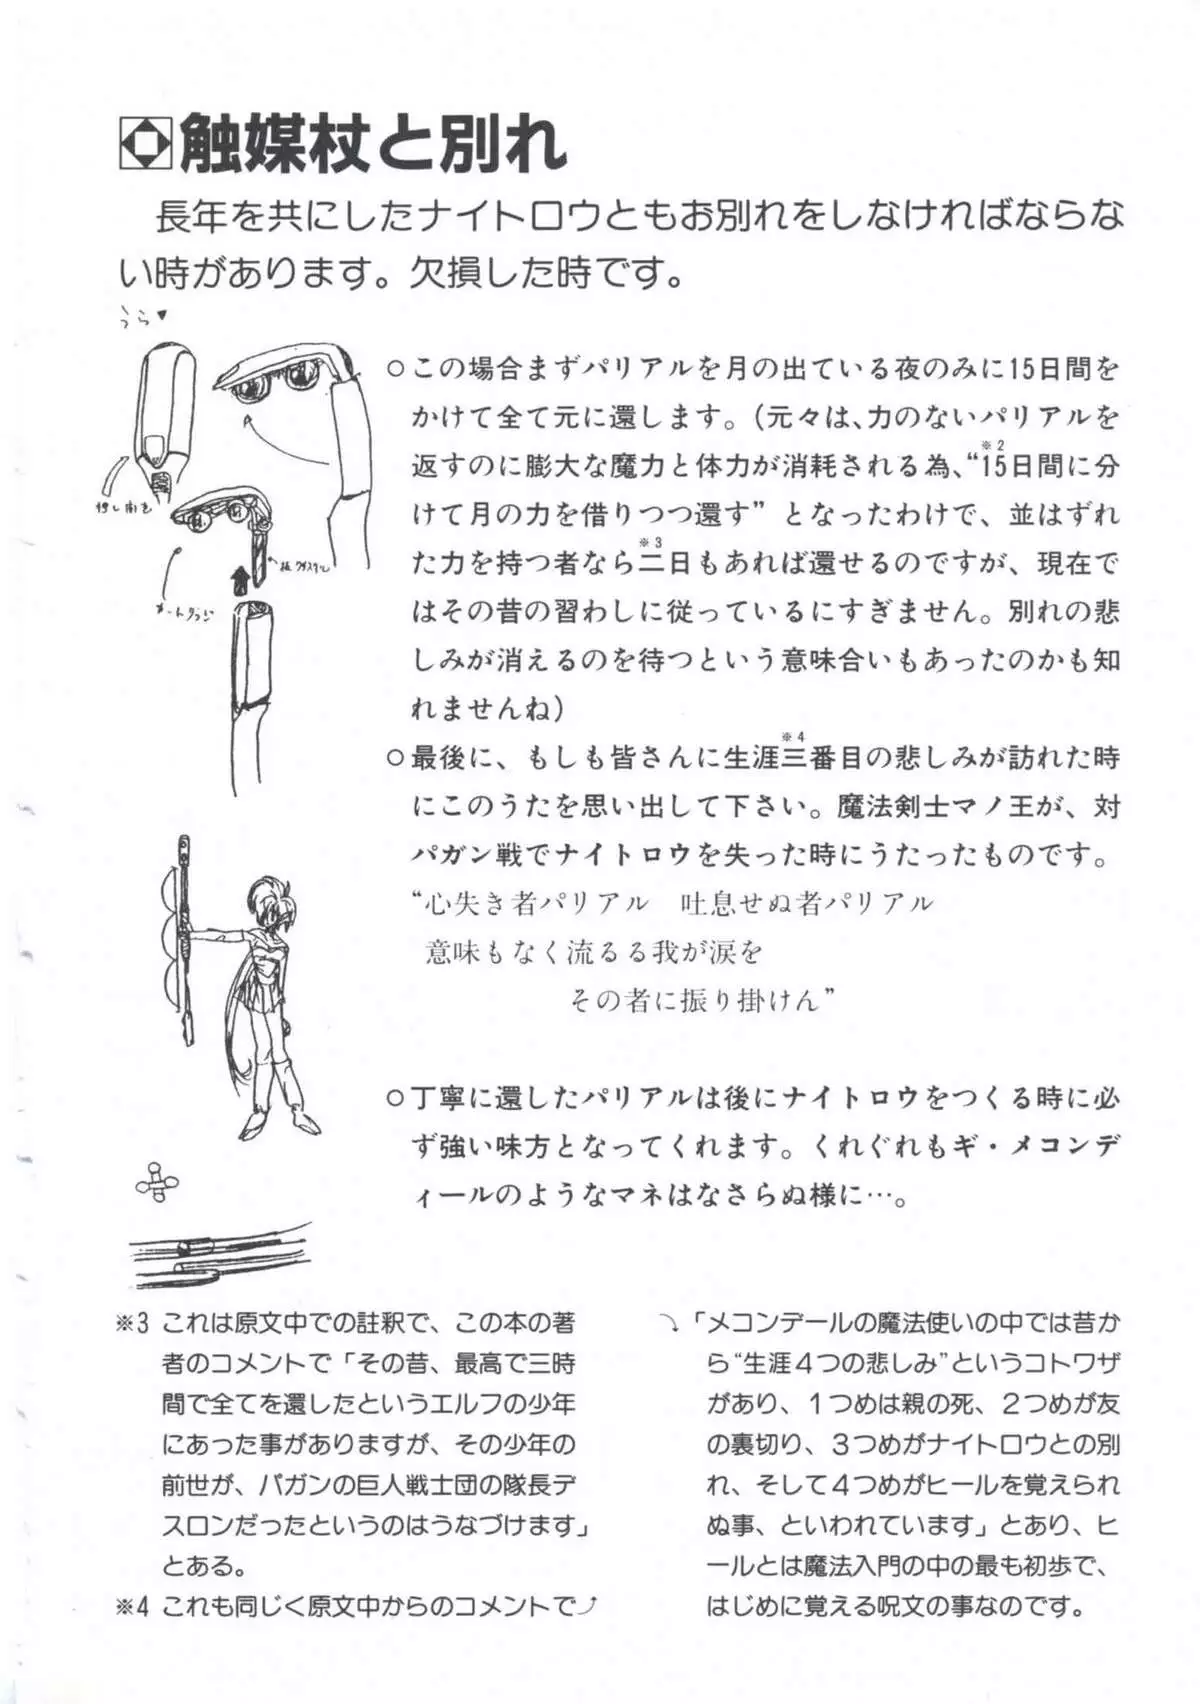 触媒杖と別れ
長年を共にしたナイトロウともお別れをしなければならな
い時があります。欠損した時です。
うら▼
押し開き
板クリスタル
オートクラン
○この場合まずパリアルを月の出ている夜のみに15日間を
かけて全て元に還します。(元々は、力のないパリアルを
返すのに膨大な魔力と体力が消耗される為、“15日間に分
※2
けて月の力を借りつつ還す”となったわけで、並はずれ
た力を持つ者なら二日もあれば還せるのですが、現在で
※3
はその昔の習わしに従っているにすぎません。別れの悲
しみが消えるのを待つという意味合いもあったのかも知
れませんね)
○最後に、もしも皆さんに生涯三番目の悲しみが訪れた時
※4
にこのうたを思い出して下さい。魔法剣士マノ王が、対
パガン戦でナイトロウを失った時にうたったものです。
“心失き者パリアル 吐息せぬ者パリアル
意味もなく流るる我が涙を
その者に振り掛けん”
○丁寧に還したパリアルは後にナイトロウをつくる時に必
ず強い味方となってくれます。くれぐれもギ・メコンデ
ィールのようなマネはなさらぬ様に…。
※3 これは原文中での註釈で、この本の著
者のコメントで「その昔、最高で三時
間で全てを還したというエルフの少年
にあった事がありますが、その少年の
前世が、パガンの巨人戦士団の隊長デ
スロンだったというのはうなづけます」
とある。
※4 これも同じく原文中からのコメントで
「メコンデールの魔法使いの中では昔か
ら“生涯4つの悲しみ”というコトワザ
があり、1つめは親の死、2つめが友
の裏切り、3つめがナイトロウとの別
れ、そして4つめがヒールを覚えられ
ぬ事、といわれています」とあり、ヒ
ールとは魔法入門の中の最も初歩で、
はじめに覚える呪文の事なのです。